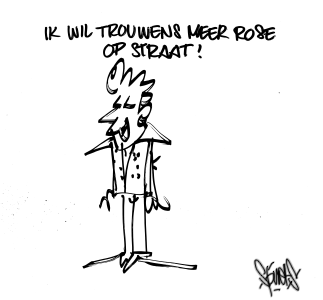 IK WIL TROUWENS MEER ROSE
OP STRAAT!